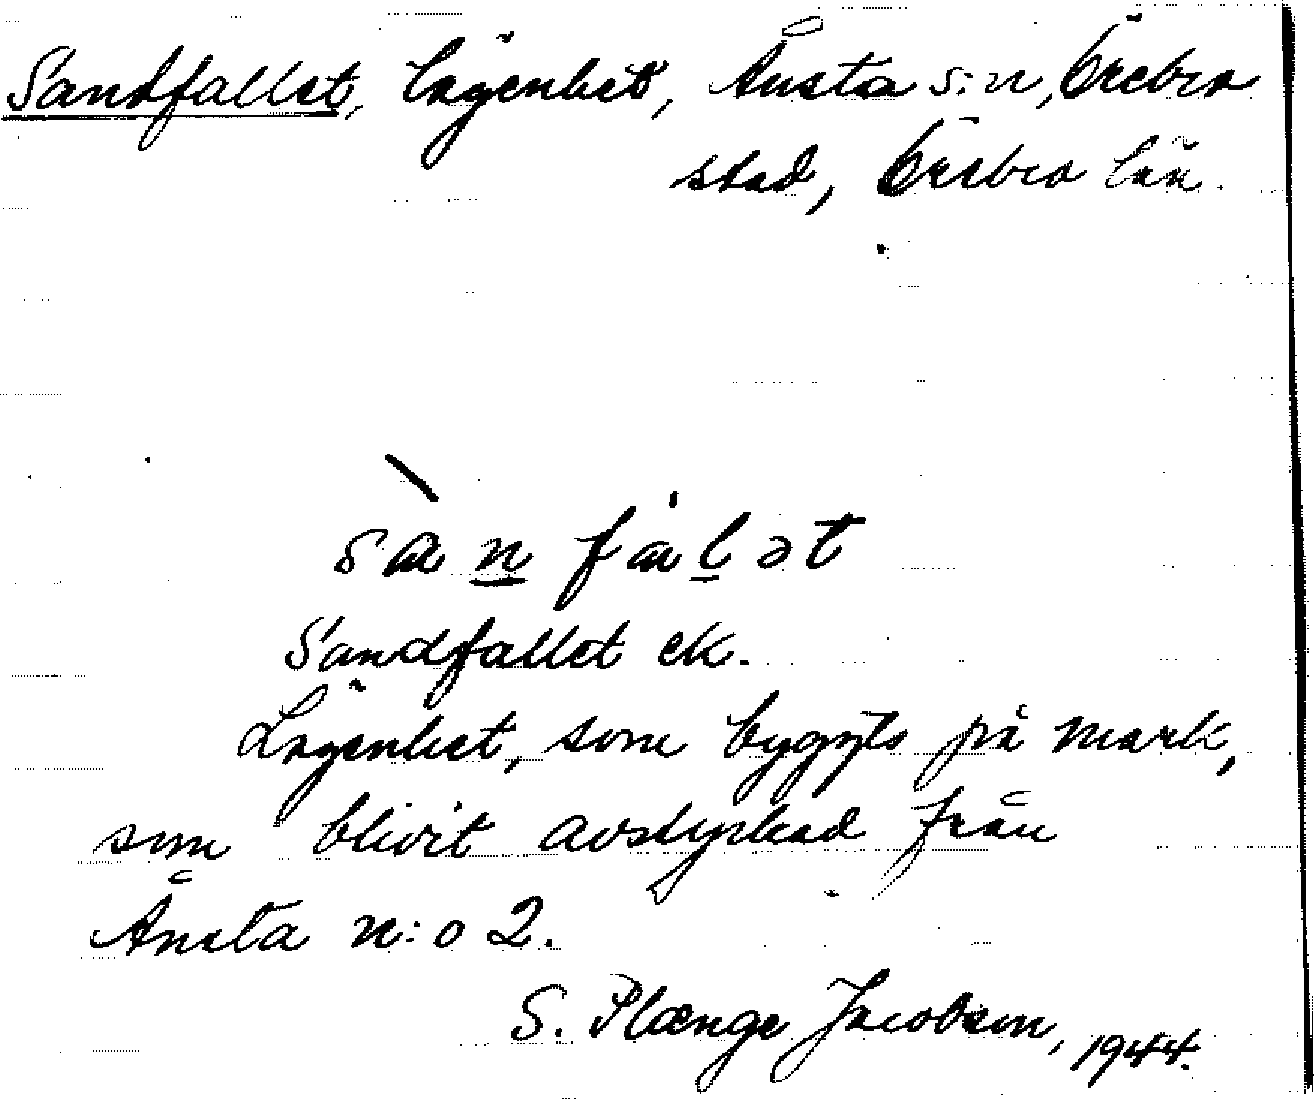 Sandfallet, lägenhet, Ånsta s:n, Örebro
stad, Örebro län.
sànfálət
Sandfallet ek.
Lägenhet, som byggts på mark,
som blivit avstyckad från
Ånsta n:o 2.
S. Plænge Jacobson, 1944.